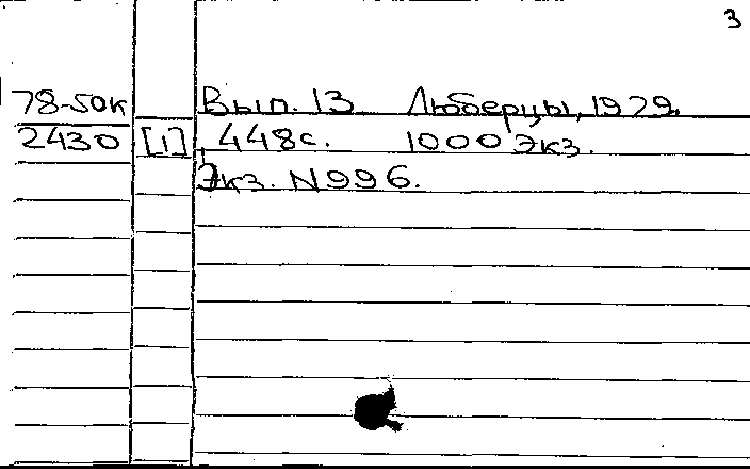 3
78-50к Вып. 13 Люберцы, 1979.
2430 [1] 448с. 1000 экз.
Экз. N 996.